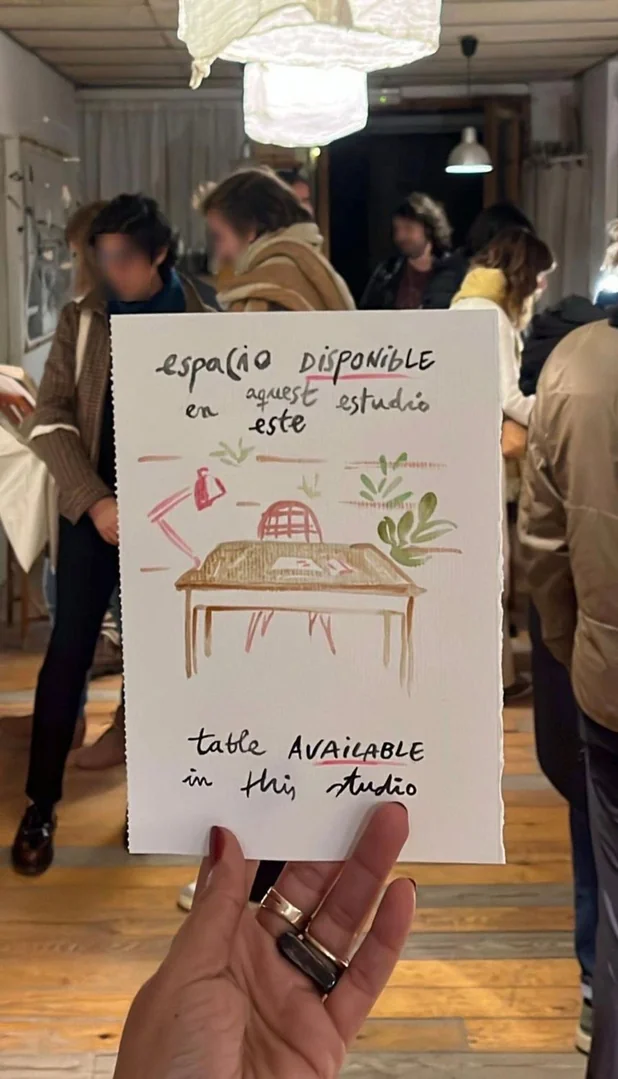 espacio DISPONIBLE
en aquest estudio
este
table AVAILABLE
in this studio